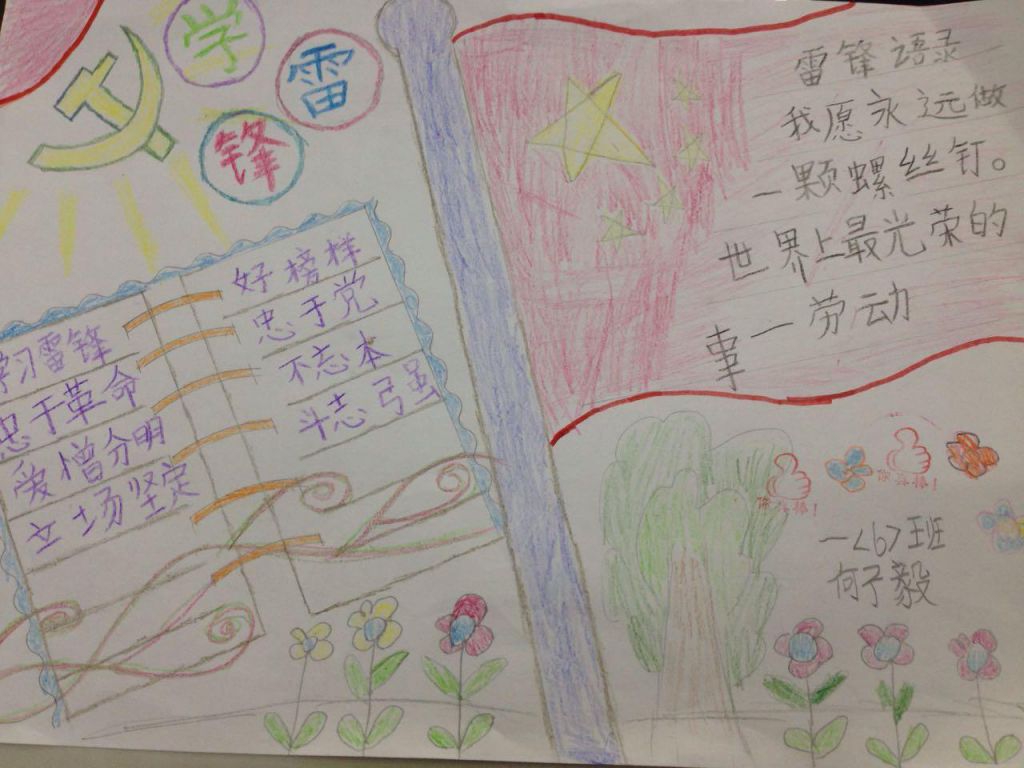 学
雷
锋
学习雷锋
好榜样
忠于革命
忠于党
爱憎分明
不忘本
立场坚定
斗志弓虽
雷锋语录
我愿永远做
一颗螺丝钉。
世界上最光荣的
事一劳动
你真棒!
你真棒!
一<6>班
何子毅